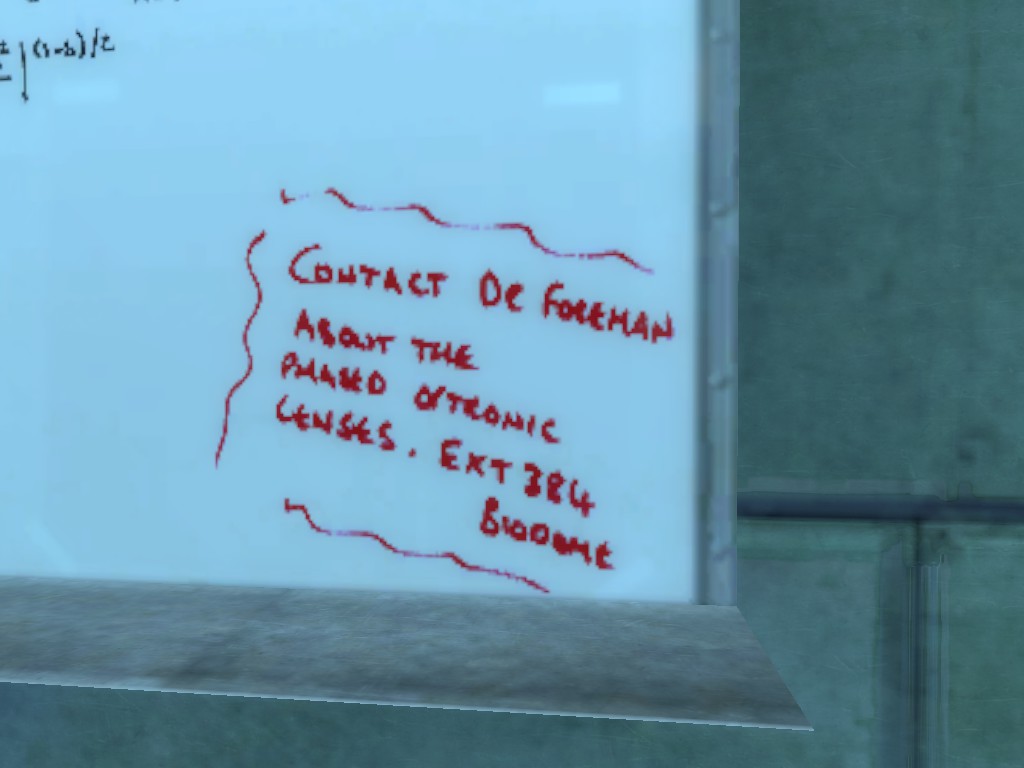 (1-b)/2
CONTACT DR FOREMAN
ABOUT THE
PHASED OPTRONIC
LENSES. EXT 384
BIODOME